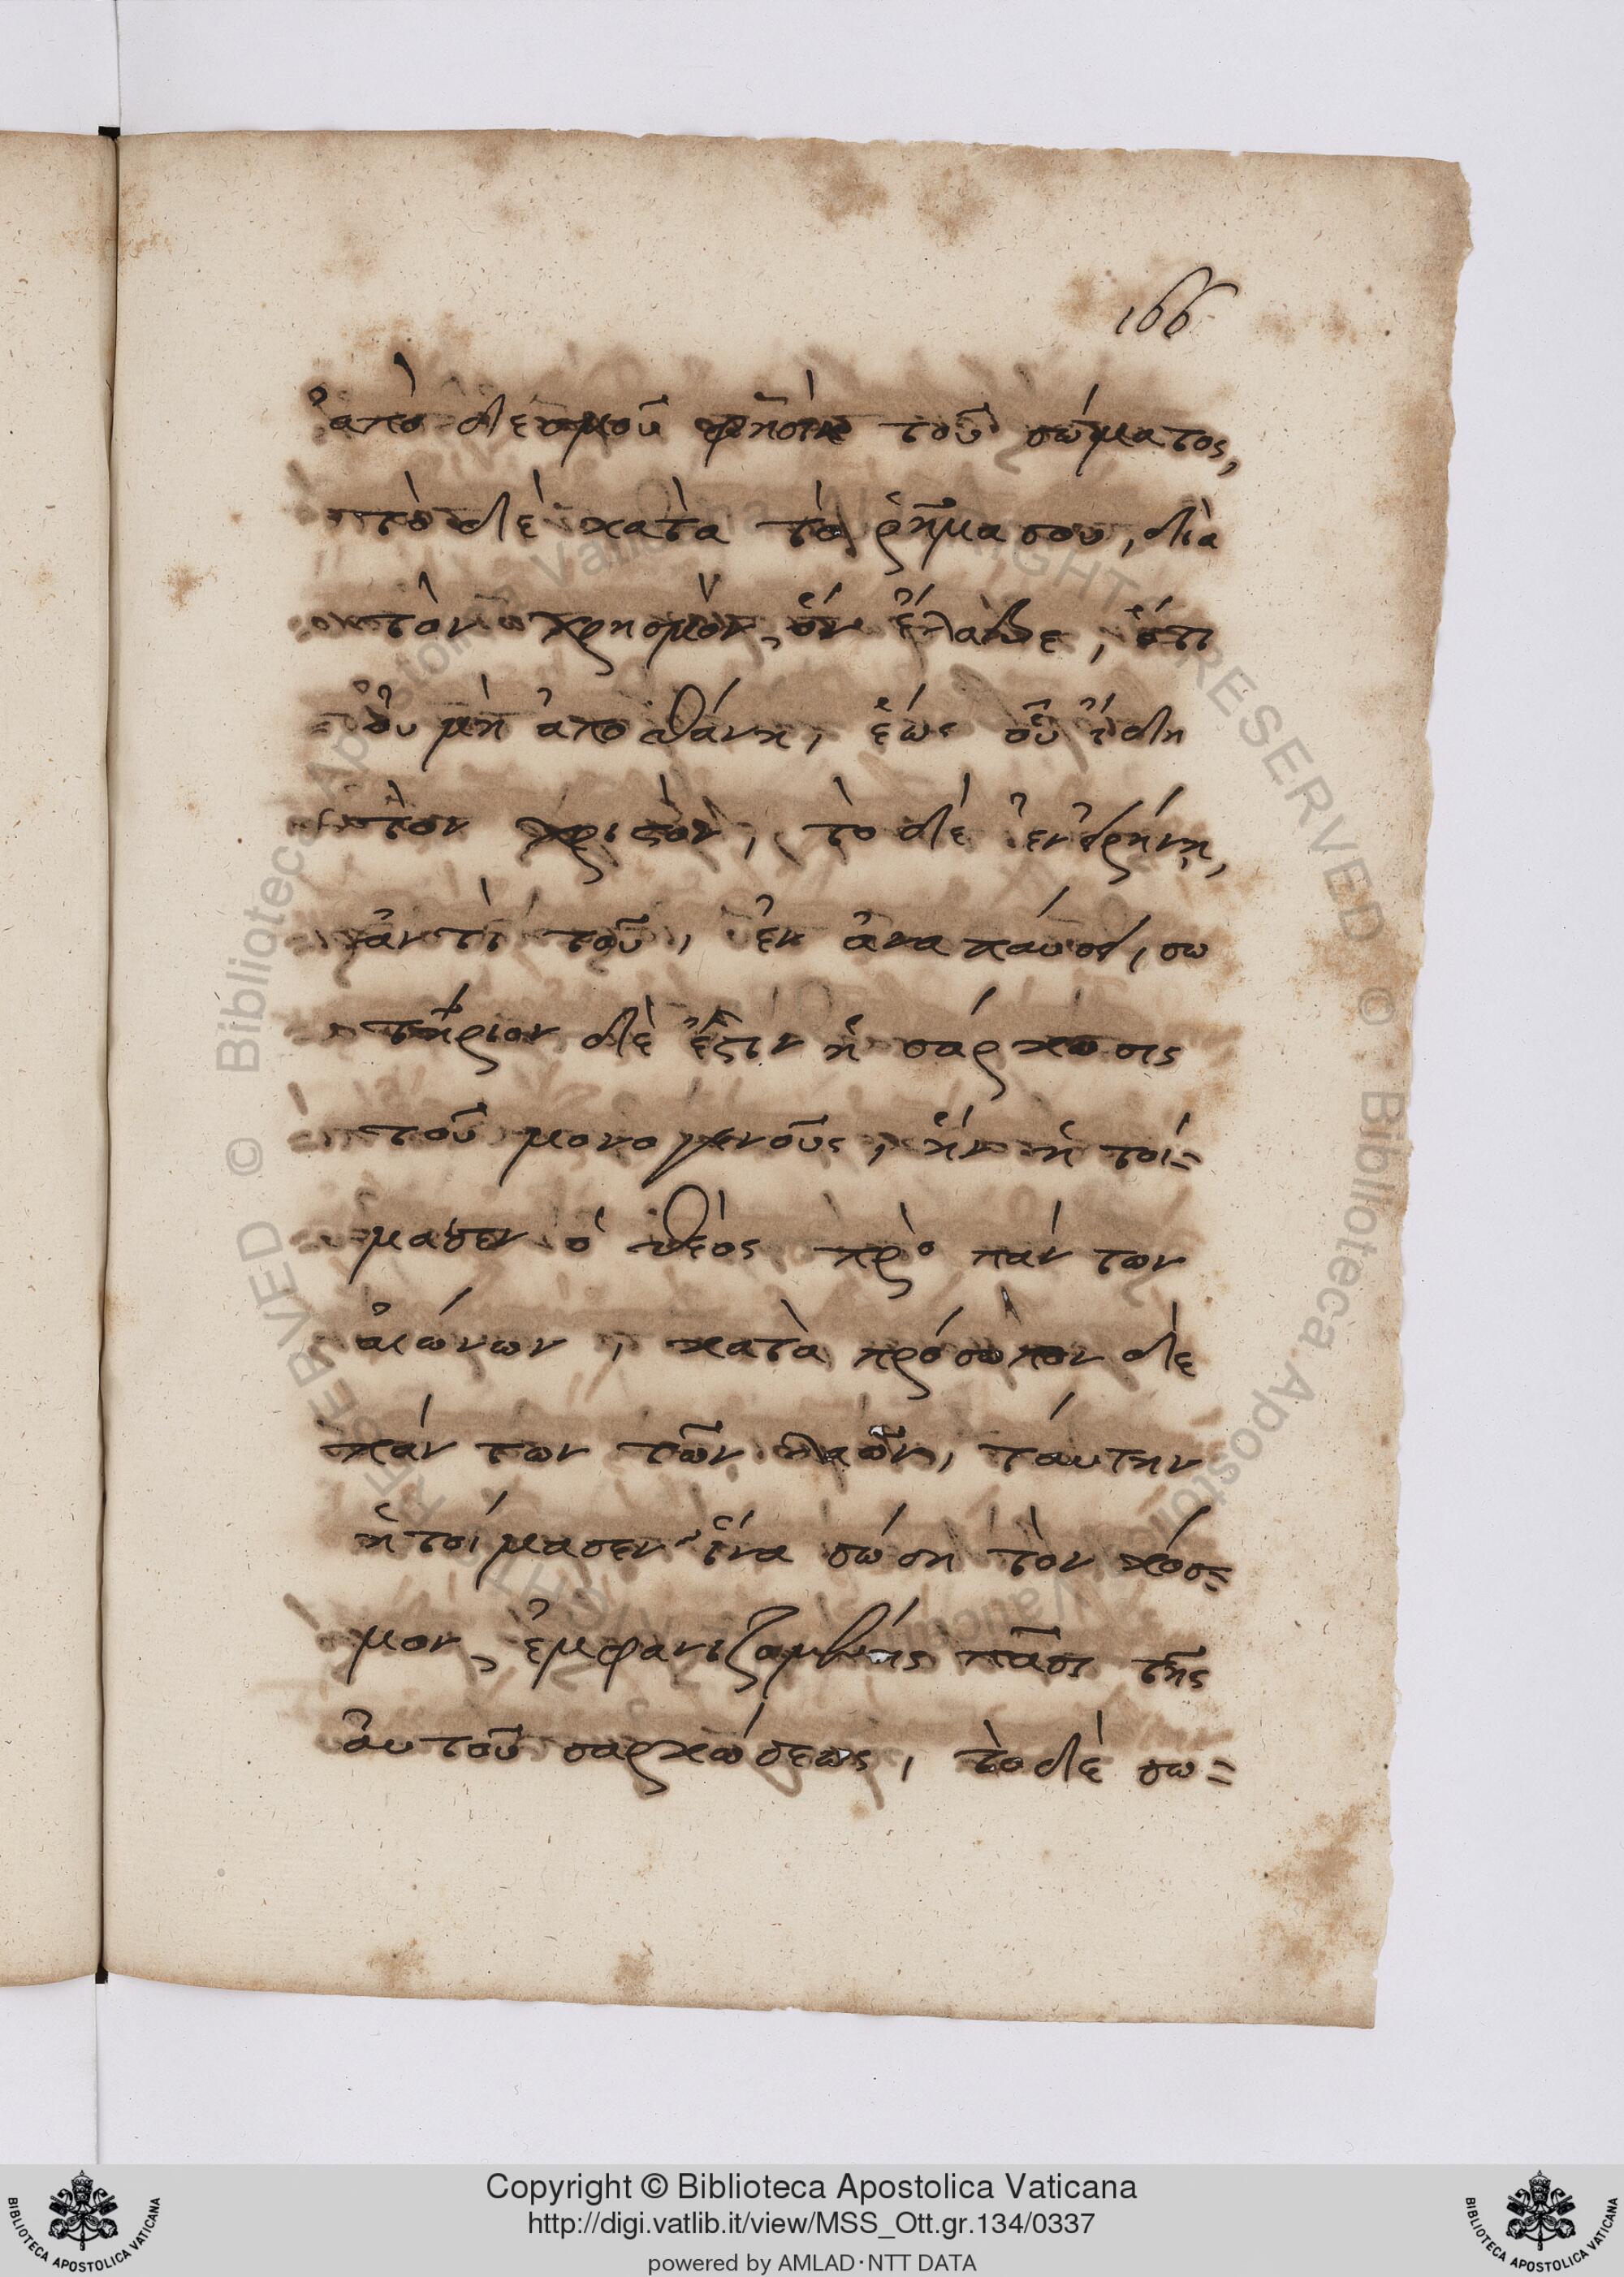 166
ἀπὸ δεσμοῦ φησὶ τοῦ σώματος,
τὸ δὲ κατὰ τὸ ῥῆμα σου, διὰ
τὸν χρησμὸν, ὃν ἔλαβε, ὅτι
ὀυ μὴ ἀποθάνη, ἑώς οὗ ἴδη
τὸν χριστὸν, τὸ δὲ ἐν ἐιρήνη,
ἀντὶ τοῦ, ἐν ἀναπαύσει, σω
τήριον δὲ ἔστιν ἡ σάρκωσις
τοῦ μονογενοῦς, ἣν ἡ τοί=
μασεν ὁ θεὸς πρὸ πάντων
ἀιώνων, κατὰ πρόσωπον δὲ
πάντων τῶν λαῶν, τάυτην
ἡτοίμασεν ἵνα σώση τὸν κόσ=
μον, ἐμφανιζομένης πᾶσι τῆς
ἀυτοῦ σαρκώσεως, τὸ δὲ σω=
Copyright © Biblioteca Apostolica Vaticana
http://digi.vatlib.it/view/MSS_Ott.gr.134/0337
powered by AMLAD·NTT DATA
BIBLIOTECA APOSTOLICA VATICANA
BIBLIOTECA APOSTOLICA VATICANA